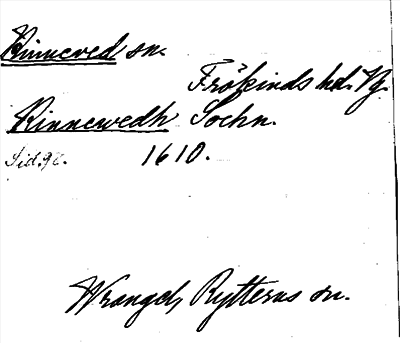 Kinneved sn.
Frökinds hd. Vg.
Kinnewedh Sochn.
Sid. 92. 1610.
Wrangel, Rytterns sn.